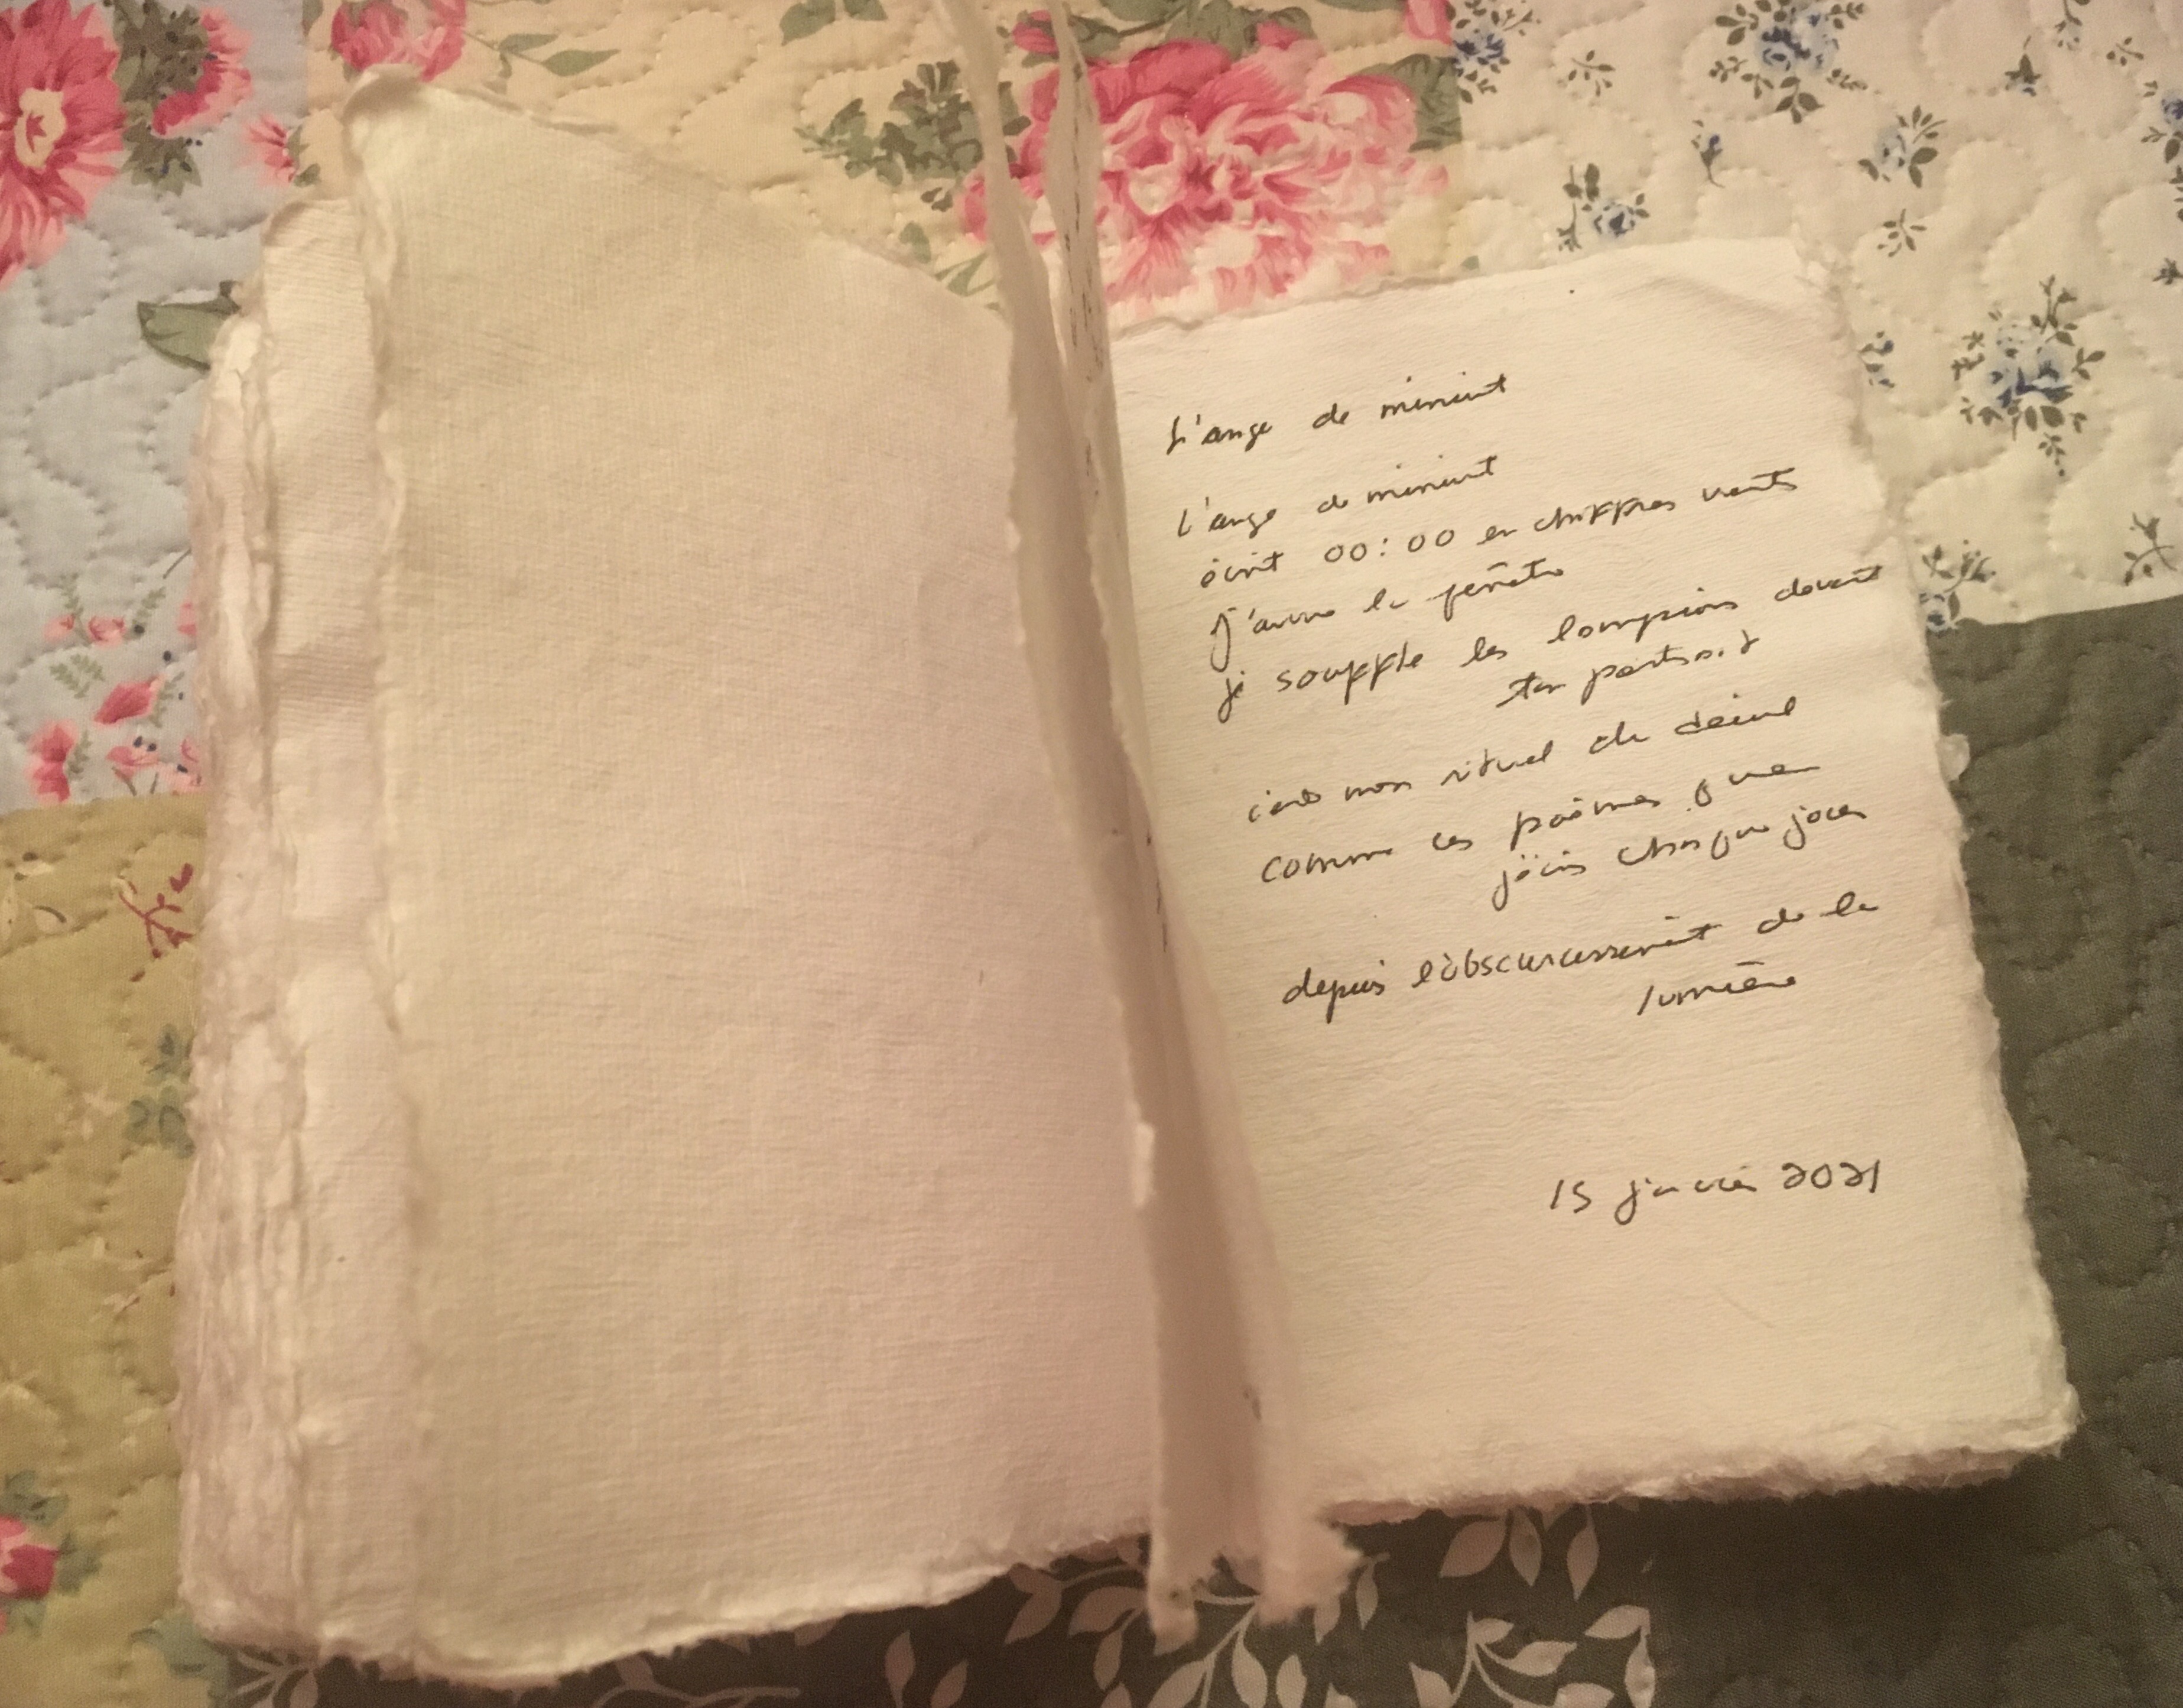 L'ange de minuit
l'ange de minuit
écrit 00:00 en chiffres verts
j'ouvre la fenêtre
je souffle les lampions devant
ton portrait
c'est mon rituel de deuil
comme ces poèmes que
j'écris chaque jour
depuis l'obscurcissement de la
lumière
15 janvier 2021